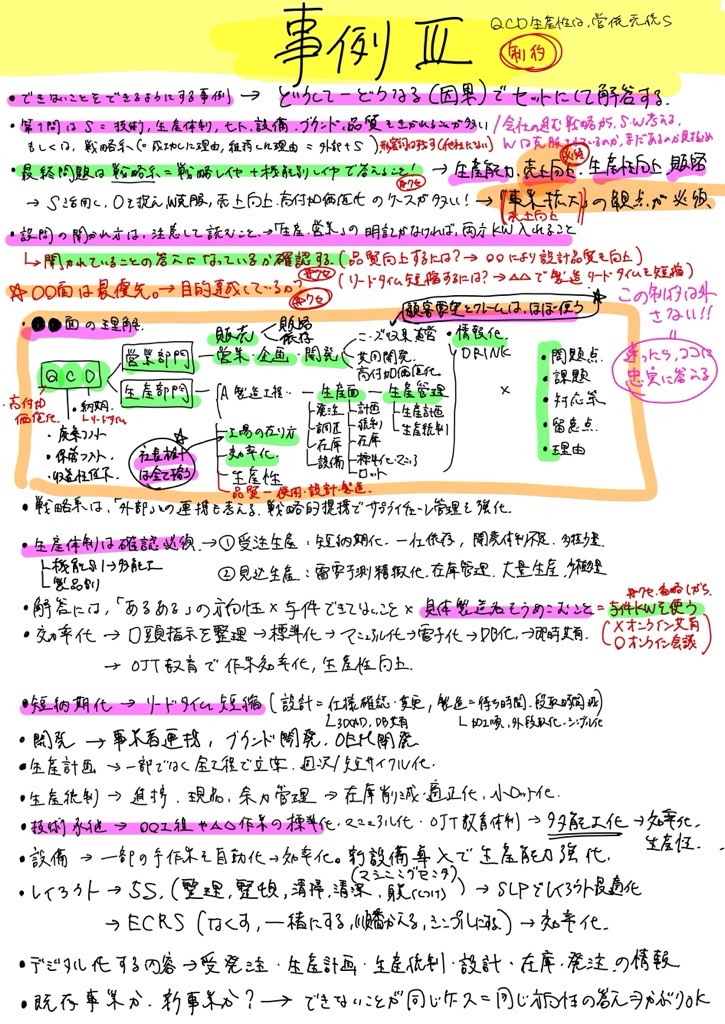 事例Ⅲ
QCD生産性は、営債元統S
制約
・できないことをできるようにする事例 → どうして－どうなる(因果)でセットにして解答する。
・第1問はS=技術,生産体制,ヒト,設備,ブランド,品質をきかれることが多い
もしくは、戦略系(=成功した理由,維持した理由=外部+S)
/会社の進む戦略からS.W考える。
・最終問題は戦略系=戦略レイヤ+機能別レイヤで答えること! → 生産能力,売上向上,生産性向上,販路
必須
→ Sを活用し、Oを捉え,W克服,売上向上.高付加価値化のケースが多い! → 「事業拡大」の観点が必須、
売上向上
・設問の聞かれ方は、注意して読むこと。→「生産,営業」の明記がなければ、両方KW入れること
↳聞かれていることの答えになっているか確認する。(品質向上するには?→○○により設計品質を向上)
☆○○面は最優先。→目的達成しているか?
(リードタイム短縮するには?→△△で製造リードタイムを短縮)
・●●面の理解.
顧客要望とクレームは、ほぼ使う
この制約は外さない!!
迷ったら、ココに忠実に答える
QCD
営業部門
生産部門
販売
販路
依存
営業・企画・開発
ニーズ収集営業
共同開発.
高付加価値化
・情報化.
DRINK
A製造工程
生産面
生産管理
発注
調達
在庫
設備
計画
統制
在庫
標準化・マニュアル
ロット
生産計画
生産統制
×
・問題点
・課題
・対応策
・留意点
・理由
・高付加価値化.
・納期
リードタイム
・廃棄コスト
・保管コスト
・収益性低下.
社長指針は全て拾う
工場の在り方
効率化.
生産性
品質－使用・設計・製造.
・戦略系は、「外部」への連携も考える、戦略的提携でサプライチェーン管理を強化.
・生産体制は確認必須. → ①受注生産:短納期化.一社依存,開発体制不足.多種少量
機能別→多能工
製品別
②見込生産:需要予測精緻化.在庫管理.大量生産.少種多量
・解答には、「あるある」の方向性×与件できてないこと×具体製造名をうめこむこと=与件KWを使う
(×オンライン共有
○オンライン会議)
・効率化 → 口頭指示を整理→標準化→マニュアル化→電子化→DB化→即時共有.
→ OJT教育で作業効率化,生産性向上.
・短納期化 → リードタイム短縮 (設計=仕様確認・変更,製造=待ち時間.段取時間減)
↳3DCAD,DB共有
↳加工順,外段取化.シングル化
・開発 → 事業者連携, ブランド開発.OEM開発
・生産計画 → 一部ではなく全工程で立案.週次/短サイクル化.
・生産統制 → 進捗.現品.余力管理 → 在庫削減・適正化,小ロット化.
・技術承継 → ○○工程や△△作業の標準化・マニュアル化・OJT教育体制 → 多能工化 → 効率化.
生産性.
・設備 → 一部の手作業を自動化→効率化。新設備導入で生産能力強化.
(マシニングセンタ)
・レイアウト → 5S.(整理,整頓,清掃,清潔,躾(しつけ)) → SLPでレイアウト最適化
→ ECRS (なくす,一緒にする,順番かえる,シンプルにする) → 効率化.
・デジタル化する内容→受発注・生産計画・生産統制・設計・在庫・発注の情報
・既存事業か.新事業か? → できないことが同じケース=同じ方向性の答えヲかぶりOK